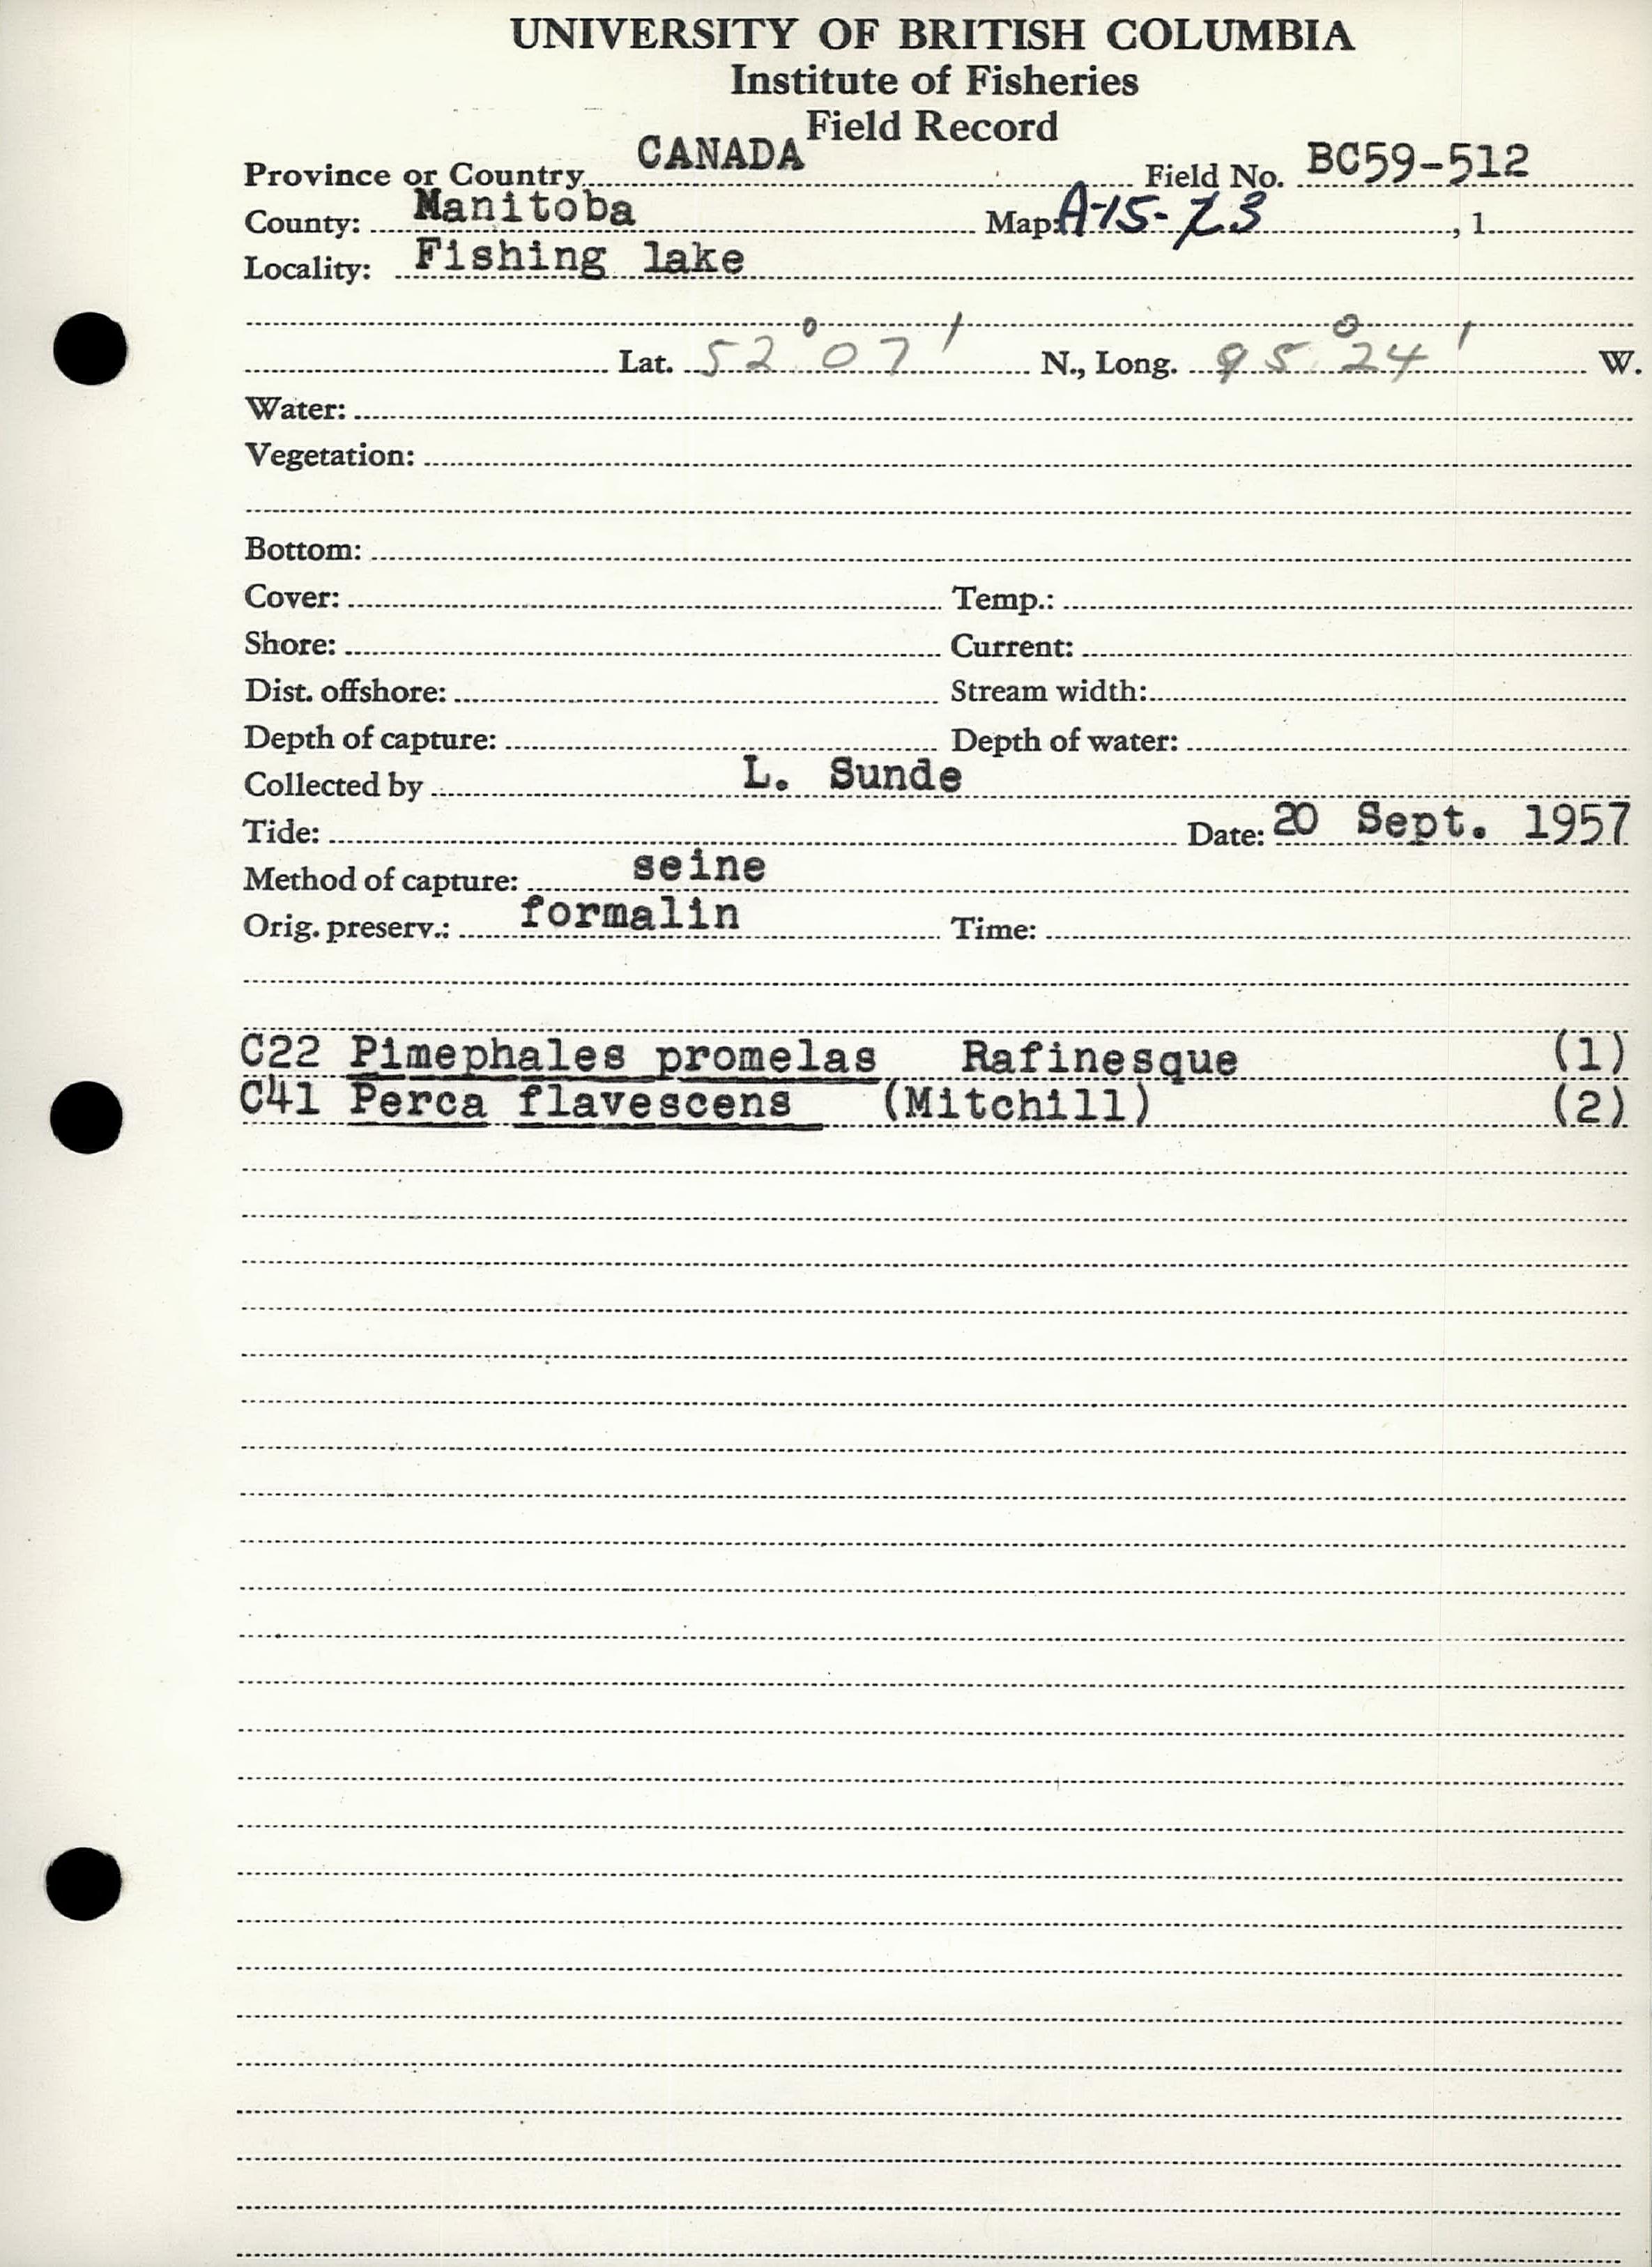 UNIVERSITY OF BRITISH COLUMBIA
Institute of Fisheries
Field Record
Province or Country CANADA Field No. BC59-512
County: Manitoba Map: A-15-Z3 , 1
Locality: Fishing lake
Lat. 52°07' N., Long. 95°24' W.
Water:
Vegetation:
Bottom:
Cover: Temp.:
Shore: Current:
Dist. offshore: Stream width:
Depth of capture: Depth of water:
Collected by L. Sunde
Tide: Date: 20 Sept. 1957
Method of capture: seine
Orig. preserv.: formalin Time:
C22 Pimephales promelas Rafinesque (1)
C41 Perca flavescens (Mitchill) (2)